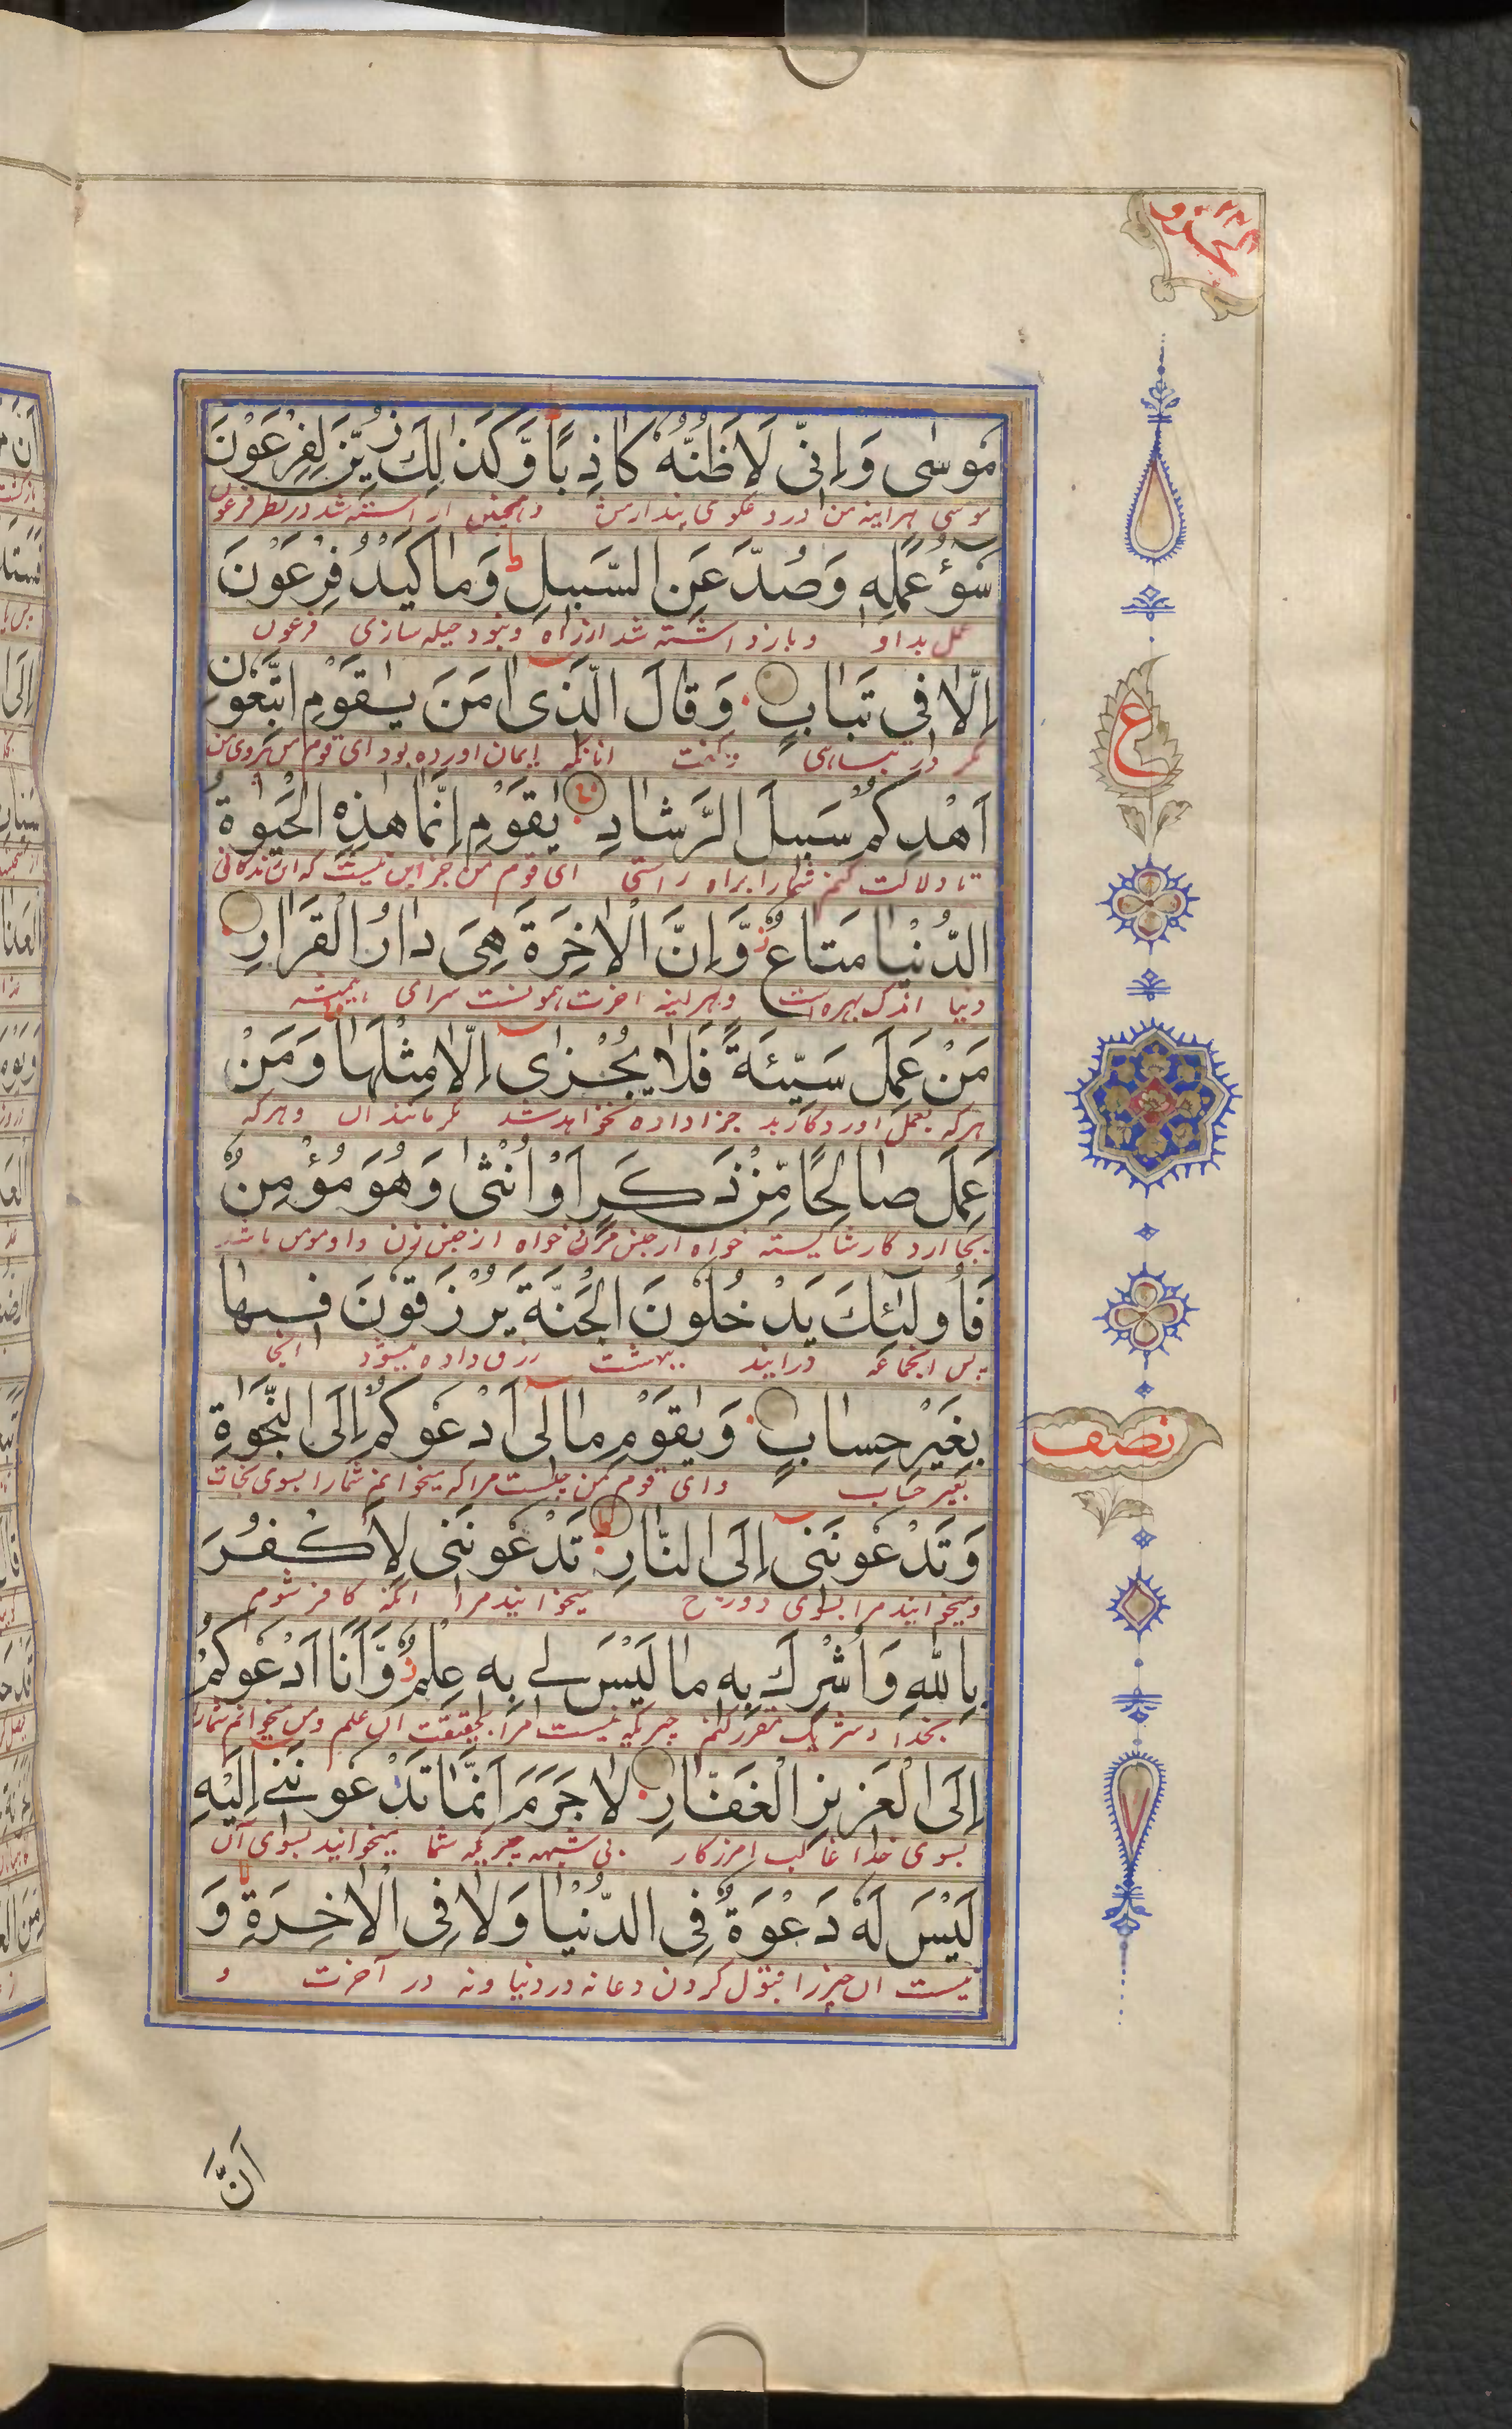 مُوسٰى وَاِنِّى لَاَظُنُّهٗ كَاذِبًا وَّكَذٰلِكَ زُيِّنَ لِفِرْعَوْنَ
موسی هراینه من دروغکوی پندارمش وهمچنین اراسته شد در نظر فرعون
سُوْٓءُ عَمَلِهٖ وَصُدَّ عَنِ السَّبِيلِ ط وَمَا كَيْدُ فِرْعَوْنَ
عمل بد او وبازداشته شد از راه ونبود حیله سازی فرعون
اِلَّا فِي تَبَابٍ وَقَالَ الَّذِىٓ اٰمَنَ يٰقَوْمِ اتَّبِعُوْنِ
مکر در وکفت انانکه ایمان اورده بود ای قوم من پیروی من
اَهْدِكُمْ سَبِيلَ الرَّشَادِ يٰقَوْمِ اِنَّمَا هٰذِهِ الْحَيٰوةُ
تا دلالت کنم شمارا براه راستی ای قوم من جز این نیست که این زندکانی
الدُّنْيَا مَتَاعٌ ز وَّاِنَّ الْاٰخِرَةَ هِىَ دَارُ الْقَرَارِ
دنیا اندک بهره است وهراینه اخرت همونست سرای همیشه
مَنْ عَمِلَ سَيِّئَةً فَلَا يُجْزٰىٓ اِلَّا مِثْلَهَا وَمَنْ
هرکه بعمل اورد کار بد جزا داده نخواهد شد مکر مانند ان وهرکه
عَمِلَ صَالِحًا مِّنْ ذَكَرٍ اَوْ اُنْثٰى وَهُوَ مُؤْمِنٌ
بجا ارد کار شایسته خواه از جنس مردان خواه از جنس زن واو مومن باشد
فَاُولٰٓئِكَ يَدْخُلُوْنَ الْجَنَّةَ يُرْزَقُوْنَ فِيهَا
پس انجماعه درایند ببهشت رزق داده میشود انجا
بِغَيْرِ حِسَابٍ وَيٰقَوْمِ مَا لِىٓ اَدْعُوكُمْ اِلَى النَّجٰوةِ
بغیر حساب وای قوم من چیست مرا که میخوانم شمارا بسوی نجات
وَتَدْعُونَنِىٓ اِلَى النَّارِ تَدْعُونَنِى لِاَكْفُرَ
ومیخوانید مرا بسوی دوزخ میخوانید مرا انکه کافر شوم
بِاللّٰهِ وَاُشْرِكَ بِهٖ مَا لَيْسَ لِى بِهٖ عِلْمٌ ز وَّاَنَا اَدْعُوكُمْ
بخدا وشریک مقرر کنم چیزیکه نیست مرا بحقیقت ان علم ومن میخوانم شمارا
اِلَى الْعَزِيزِ الْغَفَّارِ لَا جَرَمَ اَنَّمَا تَدْعُونَنِىٓ اِلَيْهِ
بسوی خدا غالب امرزکار بی شبهه چیزیکه شما میخوانید بسوی آن
لَيْسَ لَهٗ دَعْوَةٌ فِى الدُّنْيَا وَلَا فِى الْاٰخِرَةِ وَ
نیست ان چیز را قبول کردن دعا نه در دنیا ونه در آخرت و
ع
نصف
اَنَّ